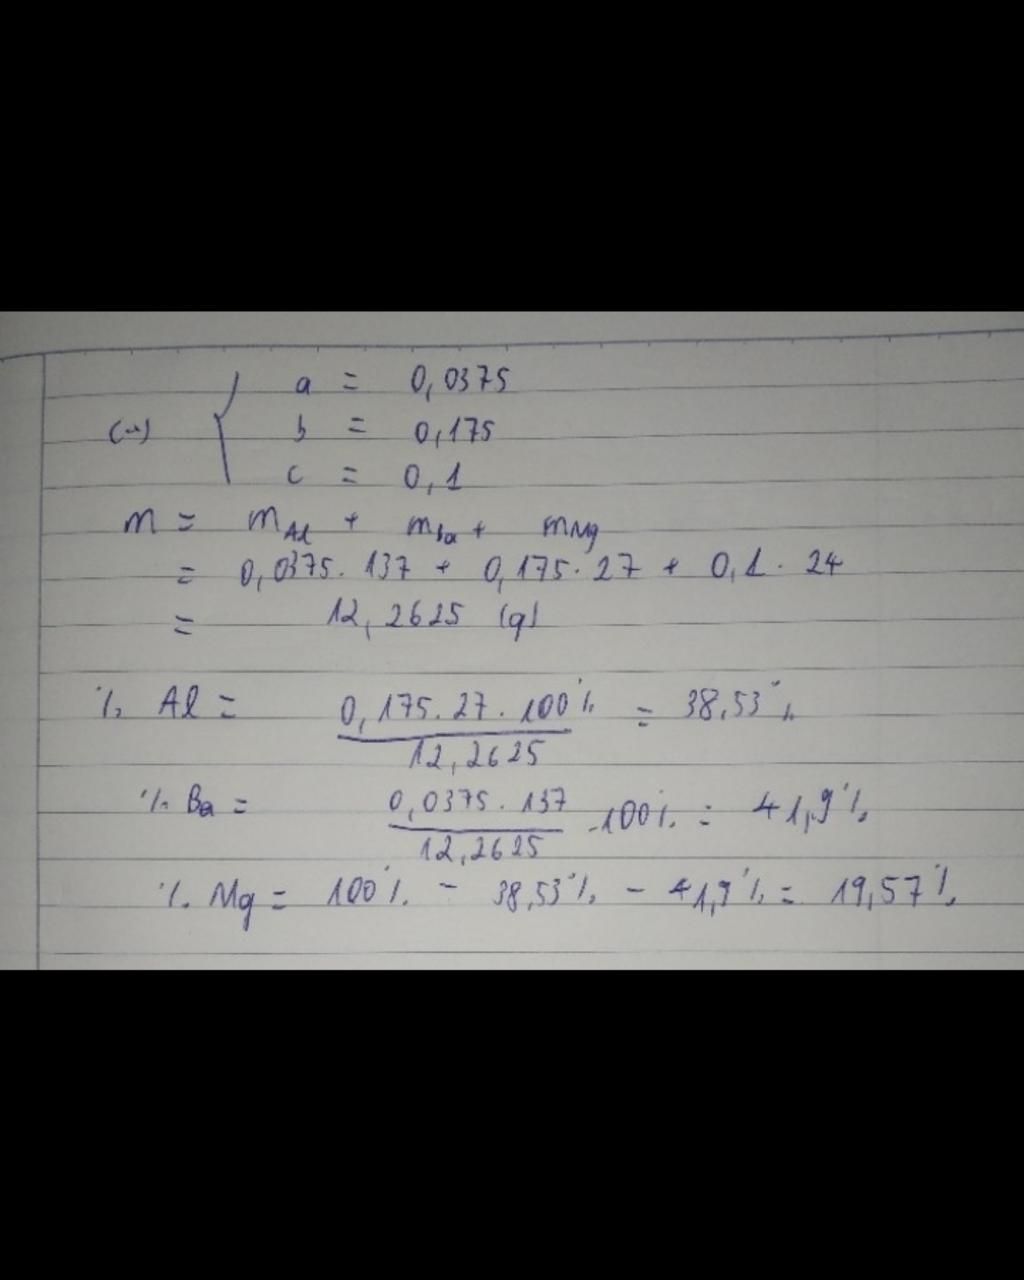 (→) { a = 0,0375
b = 0,175
c = 0,1
m = mAl + mBa + mMg
= 0,0375. 137 + 0,175. 27 + 0,1. 24
= 12,2625 (g)
% Al = 0,175. 27. 100% / 12,2625 = 38,53%
% Ba = 0,0375. 137 / 12,2625 .100% = 41,9%
% Mg = 100% - 38,53% - 41,9% = 19,57%